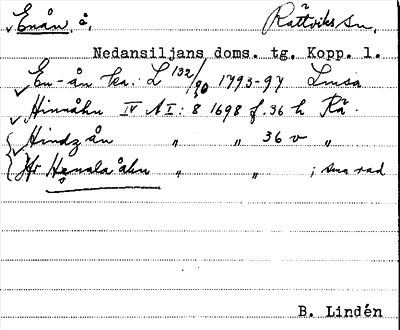 Enån, å. Rättviks sn,
Nedansiljans doms. tg. Kopp. l.
En-ån ka. L 132/90 1793-97 Lmsa
Hinnåhn IV A I: 8 1698 f. 36 h Rä.
Hindz ån " " 36 v "
Hr Hansla åhn " " ; sma rad
B. Lindén